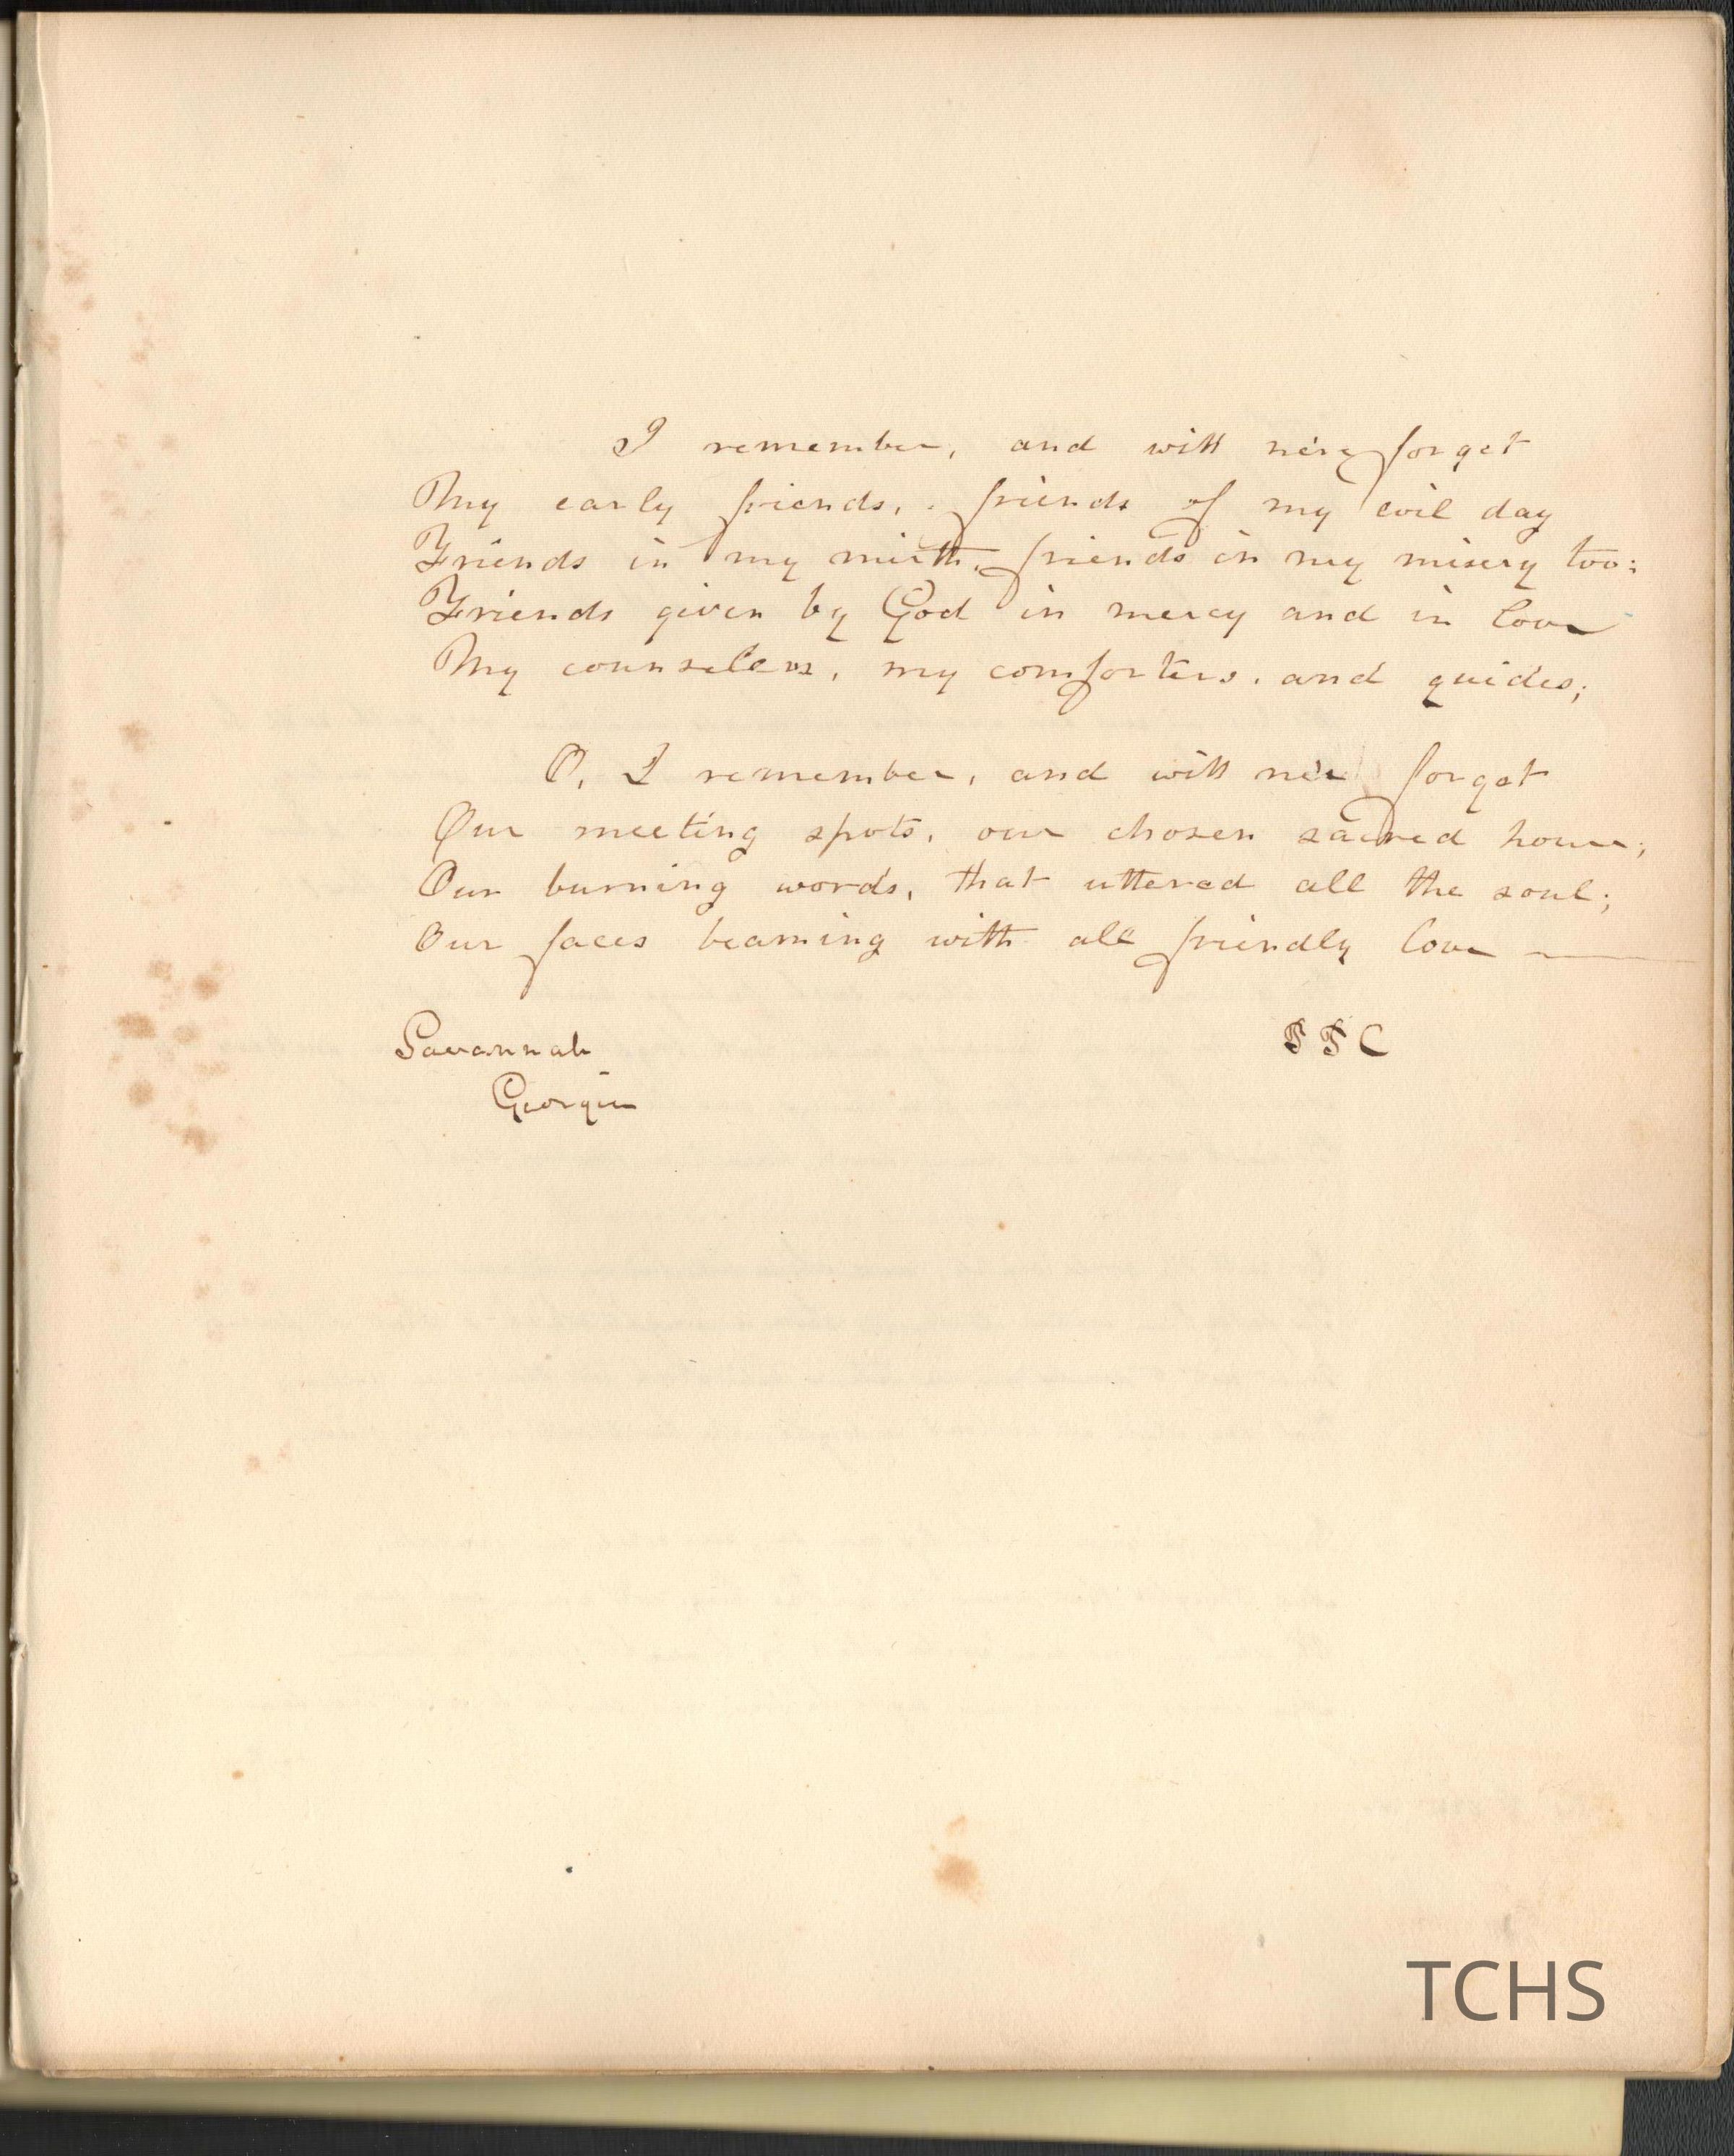 I remember, and will ne'er forget
My early friends, friends of my evil day
Friends in my mirth, friends in my misery too;
Friends given by God in mercy and in love
My counselers, my comforters, and guides;
O, I remember, and will ne'er forget
Our meeting spots, our chosen sacred hours;
Our burning words, that uttered all the soul;
Our faces beaming with all friendly love —
Savannah
Georgia
C
TCHS